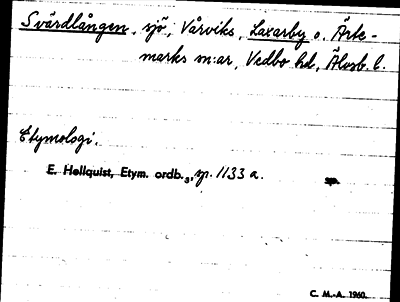 Svärdlången, sjö, Vårviks, Laxarby o. Ärte-
marks m:ar, Vedbo hd, Älvsb. l.
Etymologi.
E. Hellquist, Etym. ordb.3, sp. 1133 a.
C. M.-A. 1960.